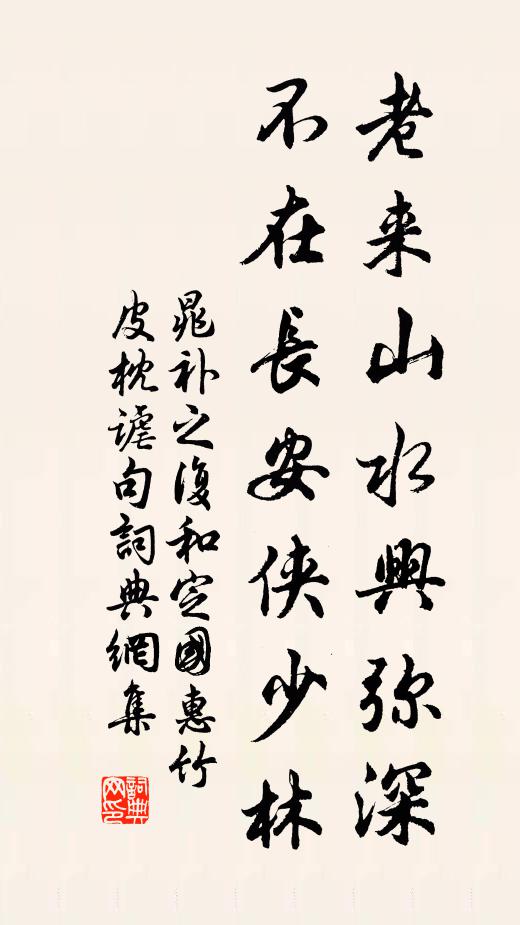 老来山水興弥深
不在長安侠少林
晁补之復和定國惠竹
皮枕謔句詞典網集
詞典網印